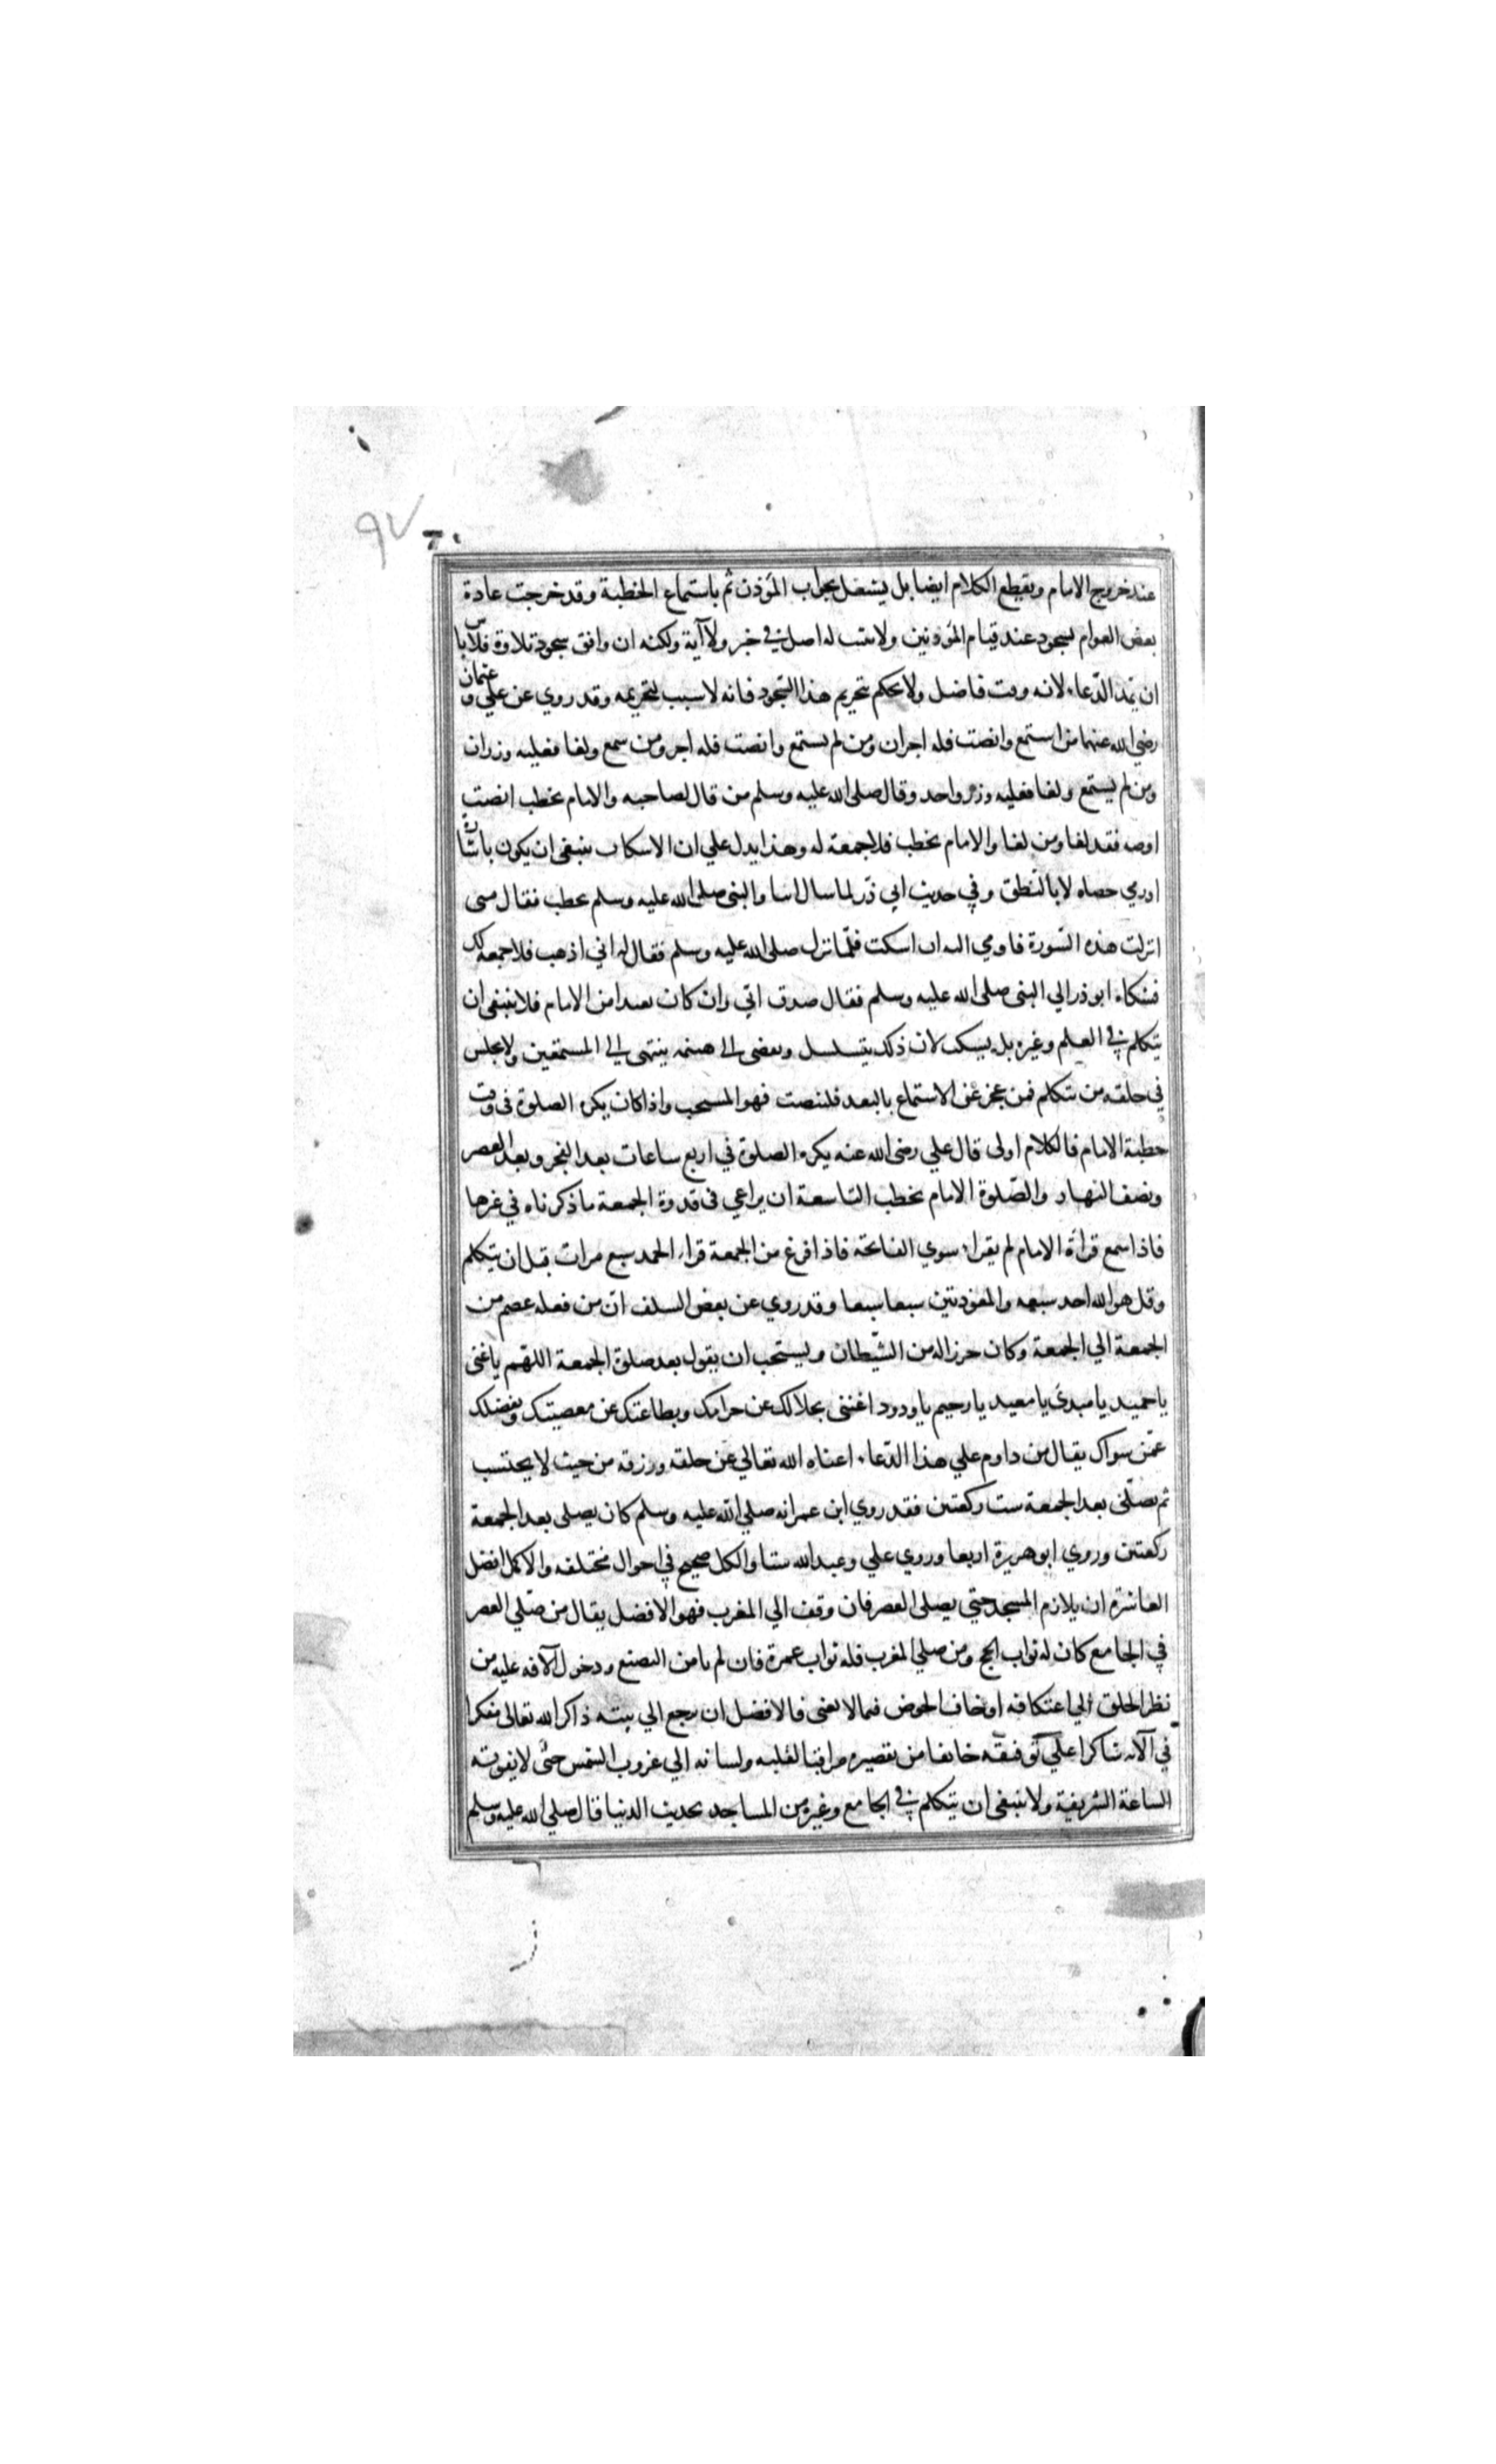 ٩٧
٦٠
عند خروج الامام ويقطع الكلام ايضا بل يشتغل بجواب المؤذن ثم باستماع الخطبة وقد خرجت عادة
بعض العوام بسجود عند قيام المؤذنين ولا يثبت له اصل في خبر ولا آية ولكنه ان وافق سجود تلاوة فلا باس
ان يمد الدعاء لانه وقت فاضل ولا يحكم بتحريم هذا السجود فانه لا سبب لتحريمه وقد روي عن علي و عثمان
رضي الله عنهما من استمع وانصت فله اجران ومن لم يستمع وانصت فله اجر ومن سمع ولغا فعليه وزران
ومن لم يستمع ولغا فعليه وزر واحد وقال صلى الله عليه وسلم من قال لصاحبه والامام يخطب انصت
اوصه فقد لغا ومن لغا والامام يخطب فلا جمعة له وهذا يدل علي ان الاسكات ينبغي ان يكون باشارة
او رمي حصاه لا بالنطق وفي حديث ابي ذر لما سال ابيا والنبي صلى الله عليه وسلم يخطب فقال متى
انزلت هذه السورة فاومي اليه ان اسكت فلما نزل صلى الله عليه وسلم فقال له ابي اذهب فلا جمعة لك
فشكاه ابو ذر الي النبي صلى الله عليه وسلم فقال صدق ابي وان كان بعيدا من الامام فلا ينبغي ان
يتكلم في العلم وغيره بل يسكت لان ذلك يتسلسل ويفضي الي هينمه ينتهي الي المستمعين ولا يجلس
في حلقه من يتكلم فمن عجز عن الاستماع بالبعد فلينصت فهو المستحب واذا كان يكره الصلوة في وقت
خطبة الامام فالكلام اولى قال علي رضي الله عنه يكره الصلوة في اربع ساعات بعد الفجر وبعد العصر
ونصف النهار والصلوة الامام يخطب التاسعة ان يراعي في قدوة الجمعة ما ذكرناه في غيرها
فاذا سمع قراة الامام لم يقرا سوي الفاتحة فاذا فرغ من الجمعة قراء الحمد سبع مرات قبل ان يتكلم
وقل هو الله احد سبعه والمعوذتين سبعا سبعا وقد روي عن بعض السلف ان من فعله عصم من
الجمعة الي الجمعة وكان حرزا له من الشيطان ويستحب ان يقول بعد صلوة الجمعة اللهم يا غني
يا حميد يا مبدئ يا معيد يا رحيم يا ودود اغنني بحلالك عن حرامك وبطاعتك عن معصيتك وبفضلك
عمن سواك يقال من داوم علي هذا الدعاء اغناه الله تعالي عن خلقه ورزقه من حيث لا يحتسب
ثم يصلي بعد الجمعة ست ركعتين فقد روي ابن عمر انه صلي الله عليه وسلم كان يصلي بعد الجمعة
ركعتين وروي ابو هريرة اربعا وروي علي وعبد الله ستا والكل صحيح في احوال مختلفه والاكمل افضل
العاشرة ان يلازم المسجد حتي يصلى العصر فان وقف الي المغرب فهو الافضل يقال من صلي العصر
في الجامع كان له ثواب الحج ومن صلي المغرب فله ثواب عمرة فان لم يامن التصنع ودخول الآفه عليه من
نظر الخلق الي اعتكافه او خاف الخوض فيما لا يعني فالافضل ان يرجع الي بيته ذاكرا لله تعالى مفكرا
في آلائه شاكرا علي توفيقه خائفا من تقصيره مراقبا لقلبه ولسانه الي غروب الشمس حتى لا يفوته
الساعة الشريفة ولا ينبغي ان يتكلم في الجامع وغيره من المساجد بحديث الدنيا قال صلي الله عليه وسلم